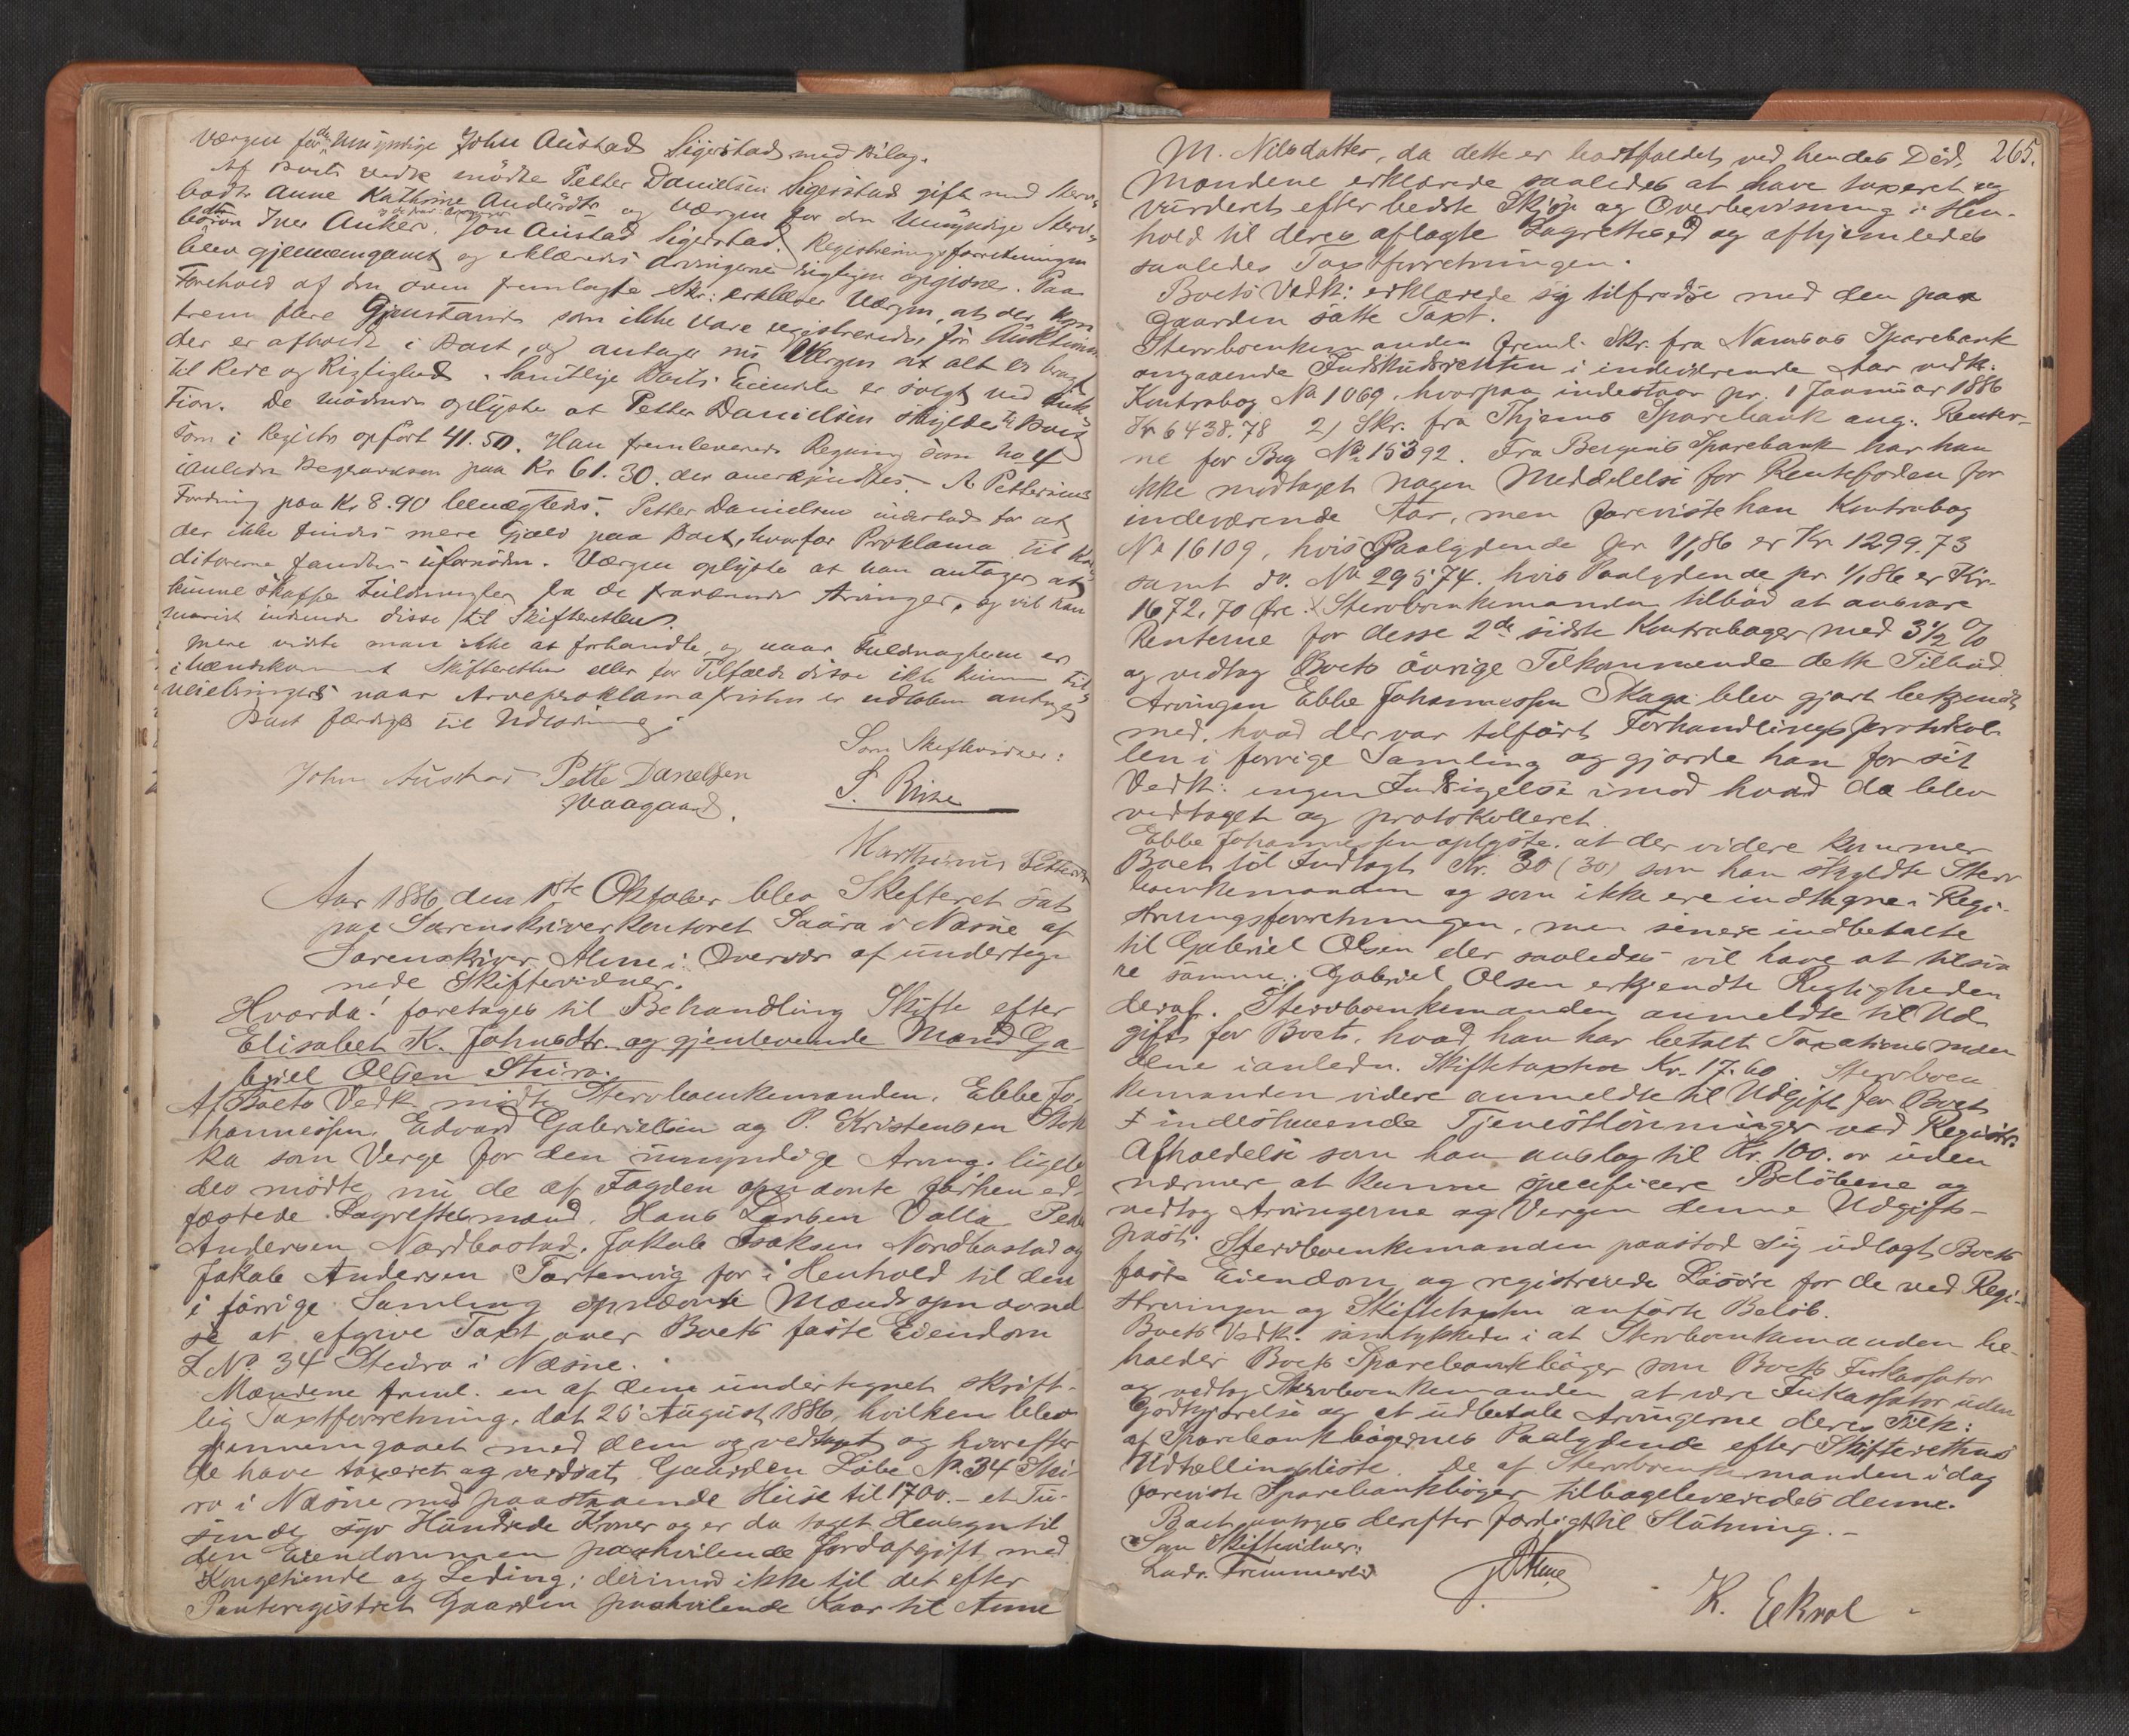 Værgen for den Umyndige John Aústad Sigerstad med Bilag.
Af Boets Vedk mödte Petter Danielsen Sigerstad gift med Sterv-
bodtr Anne Kathrine Andersdtr og Værgen for den Umyndige Sterv-
bosön Iver Anker. Jon Aústad Sigerstad. Registreringsforretningen
blev gjennemgaaet og erklæredes Arvingerne rigtigen opgivne. Paa
Forehold af den oven fremlagte Skr: erklærer Værgen, at der kom
frem flere Gjenstande som ikke vare registrerede, för Aúktionen
der er afholdt i Boet, og antager nú Værgen at alt er bragt
til Rede og Rigtighed. Samtlige Boets Eiendele er solgt ved Aúk
tion. De mödende oplyste at Petter Danielsen skylder Boet
som i Registr opfört 41.50. Han fremleverede Regning som No 4
ianledn Begravelsen paa Kr 61.30. der anerkjendtes. A Pettersens
Fordring paa Kr 8.90 benægtedes. Petter Danielsen indestod for at
der ikke findes mere Gjæld paa Boet, hvorfor Proklama til Kre
ditorerne fandtes úfornöden. Værgen oplyste at han antager at
kunne skaffe Fuldmagter fra de fraværende Arvinger, og vil han
snarest indsende disse til Skifteretten.
Mere vidste man ikke at forhandle, og naar Fuldmagterne er
ihændekommet Skifteretten eller for Tilfælde disse ikke kunne til
veiebringes naar Arveproklamafristen er udloben antages
Boet færdigt til Udlodning
Som Skiftevidner:
John Aústad Pette Danelsen
paaagaard.
S. Brise
Marthinus Petter
Aar 1886 den 1ste Oktober blev Skifteret sat
paa Sorenskriverkontoret Saúra i Næsne af
Sorenskriver Alme i Overvær af undertegn
nede Skiftevidner.
Hvorda! foretages til Behandling Skifte efter
Elisabet K. Johnsdtr. og gjenlevende Mand Ga
briel Olsen Stúro.
Af Boets Vedk mödte Stervboenkemanden, Ebbe Jo-
hannessen, Edvard Gabrielsen og P. Kristensen Stok
ka som Verge for den umyndige Arving. ligele
des mödte nú de af Fogden opnævnte forhen ed-
fæstede Lagrettesmænd, Hans Larsen Valla, Peder
Andersen Nordbostad, Jakob Isaksen Nordbostad og
Jakob Andersen Tortenvig for i Henhold til den
i forrige Samling opnævnte Mændsopnævnel
se at afgive Taxt over Boets faste Eiendom
L No. 34 Steiro i Næsne.
Mændene freml. en af dem undertegnet skrift-
lig Taxtforretning, dat 25 Aúgúst 1886, hvilken blev
gjennemgaaet med dem og vedtaget og hvorefter
de have taxeret og verdsat Gaarden Löbe No. 34 Stei-
ro i Næsne med paastaaende Húse til 1700.- et Tú-
sinde syv Húndrede Kroner og er da taget Hensyn til
den Eiendommen paahvilende Jordafgift med
Kongetiende og Leding; derimod ikke til det efter
Panteregistret Gaarden paahvilende Kaar til Anne
265.
M. Nilsdatter, da dette er bortfaldet ved hendes Död.
Mændene erklærede saaledes at have taxeret og
vúrderet efter bedste Skjön og Overbevisning i Hen-
hold til deres aflagte Lagrettesed og afhjemledes
saaledes Taxtforretningen.
Boets Vedk: erklærede sig tilfredse med den paa
Gaarden satte Taxt.
Stervboenkemanden freml. Skr. fra Namsos Sparebank
angaaende Indskúdsrenten i indeværende Aar vedk.
Kontrabog No 1069, hvorpaa indestaar pr. 1 Januar 1886
Kr 6438.78 2) Skr. fra Thjems Sparebank ang. Renter-
ne for Bog No. 15392. Fra Bergens Sparebank har han
ikke modtaget nogen Meddelelse for Rentefoden for
indeværende Aar, men foreviste han Kontrabog
No 16109, hvis Paalydende pr 1/1 86 er Kr 1299.73
samt do. No 29574. hvis Paalydende pr. 1/1 86 er Kr.
1672,70 Öre. Stervboenkemanden tilböd at ansvare
Renterne for desse 2de sidste Kontraboger med 3½ %
og vedtog Boets övrige Vedkommende dette Tilbúd
Arvingen Ebbe Johannessen Skaga blev gjort bekjendt
med, hvad der var tilfört Forhandlingsprotokol-
len i forrige Samling og gjorde han for sit
Vedk: ingen Indsigelse imod hvad da blev
vedtaget og protokolleret.
Ebbe Johannessen oplyste, at der videre kommer
Boet til Indtægt Kr. 30 (30) som han skyldte Sterv
boenkemanden og som ikke ere indtagne i Regi-
streringsforretningen, men senere indbetalte
til Gabriel Olsen der saaledes vil have at tilsva
re samme. Gabriel Olsen erkjendte Rigtigheden
deraf. Stervboenkemanden anmeldte til Ud
gift for Boets, hvad han har betalt Taxationsmæn
dene ianledn. Skiftetaxten Kr. 17.60. Stervboen
kemanden videre anmeldte til Udgift for Boet
indestaaende Tjenestlönninger ved Registr:
Afholdelse som han anslog til Kr. 100. or úden
nærmere at kunne specificere Belöbene og
vedtog Arvingerne og Vergen denne Udgifts-
post. Stervboenkemanden paastod sig udlagt Boets
faste Eiendom og registrerede Lösöre for de ved Regi-
streringen og Skiftetaxten anförte Belöb.
Boets Vedk. samtykkede i at Stervboenkemanden be-
holder Boets Sparebankböger som Boets Inkassator
og vedtog Stervboenkemanden at være Inkassator úden
Godtgjörelse og at údbetale Arvingerne deres Tilk:
af Sparebankbögernes Paalydende efter Skifterettens
Udtællingsliste. De af Stervboenkemanden idag
foreviste Sparebankböger tilbageleveredes denne.
Boet antoges derefter færdigt til Slútning.-
Som Skiftevidner:
Ludv. Trimmerlid
K. Ekrol